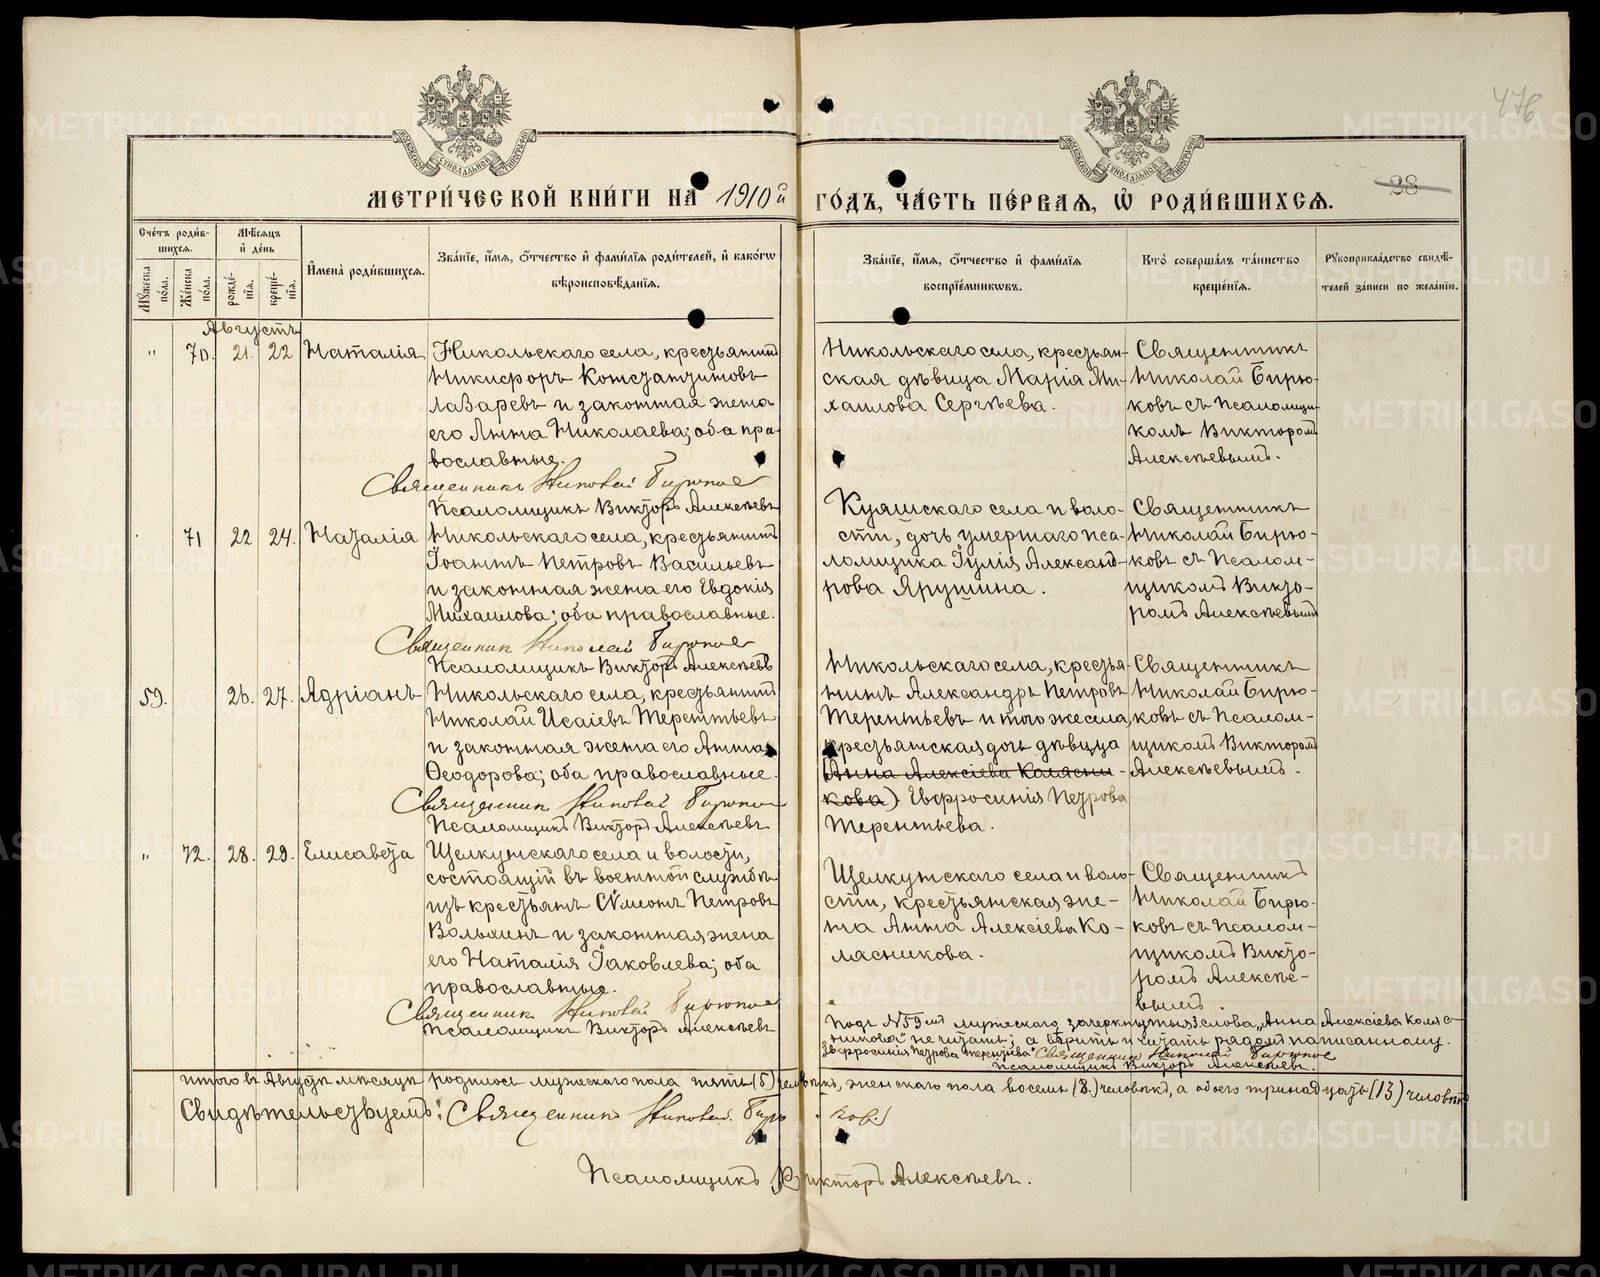 476
МОСКОВСКОЙ СУНОДАЛЬНОЙ ТИПОГРАФІИ
МОСКОВСКОЙ СУНОДАЛЬНОЙ ТИПОГРАФІИ
МЕТРИ́ЧЕСКОЙ КНИ́ГИ НА 1910й ГО́ДЪ, ЧА́СТЬ ПЕ́РВАѦ, Ѡ҆ РОДИ́ВШИХСѦ.
28
Сче́тъ роди́в-
шихсѧ.
Мꙋжеска по́ла.
Же́нска по́ла.
Мѣ́сѧцъ
и҆ де́нь
рожде́-
нїѧ.
креще́-
нїѧ.
И҆мена̀ роди́вшихсѧ.
Зва́нїе, и҆́мѧ, ѻ҆́тчество и҆ фами́лїѧ роди́телей, и҆ како́гѡ
вѣроисповѣ́данїѧ.
Зва́нїе, и҆́мѧ, ѻ҆́тчество и҆ фами́лїѧ
воспрїе́мникѡвъ.
Кто̀ соверша́лъ та́инство
креще́нїѧ.
Рꙋкоприкла́дство свидѣ́-
телей за́писи по жела́нїю.
Августъ
" 70. 21. 22 Наталія
Никольскаго села, крестьянинъ
Никифоръ Константиновъ
Лазаревъ и законная жена
его Анна Николаева; оба пра-
вославные.
Священникъ Николай Бирюков
Псаломщикъ Викторъ Алексѣевъ
Никольскаго села, крестьян-
ская дѣвица Марія Ми-
хаилова Сергѣева.
Священникъ
Николай Бирю-
ковъ съ псаломщи-
комъ Викторомъ
Алексѣевымъ.
71 22 24. Наталія
Никольскаго села, крестьянинъ
Іоаннъ Петровъ Васильевъ
и законная жена его Евдокія
Михаилова; оба православные.
Священник Николай Бирюков
Псаломщикъ Викторъ Алексѣевъ
Куяшскаго села и воло-
сти, дочь умершаго пса-
ломщика Іулія Александ-
рова Ярушина.
Священникъ
Николай Бирю-
ковъ съ псалом-
щикомъ Викто-
ромъ Алексѣевымъ
59. 26. 27. Адріанъ
Никольскаго села, крестьянинъ
Николай Исаіевъ Терентьевъ
и законная жена его Анна
Ѳеодорова; оба православные.
Священник Николай Бирюков
Псаломщикъ Викторъ Алексѣевъ
Никольскаго села, крестья-
нинъ Александръ Петровъ
Терентьевъ и того же села,
крестьянская дочь дѣвица
(Анна Алексіева Колясни-
кова) Евфросинія Петрова
Терентьева.
Священникъ
Николай Бирю-
ковъ съ псалом-
щикомъ Викторомъ
Алексѣевымъ.
" 72. 28. 29. Елисавета
Щелкунскаго села и волости,
состоящій въ военной службѣ
изъ крестьянъ Сѵмеонъ Петровъ
Вольхинъ и законная жена
его Наталія Іаковлева; оба
православные.
Священник Николай Бирюков
Псаломщикъ Викторъ Алексѣевъ
Щелкунскаго села и воло-
сти, крестьянская же-
на Анна Алексіева Ко-
лясникова.
Священникъ
Николай Бирю-
ковъ съ псалом-
щикомъ Викто-
ромъ Алексѣе-
вымъ.
Подъ №59мъ мужескаго зачеркнутыя слова „Анна Алексіева Коляс-
никова" не читать, а вѣрить и читать рядомъ написанному.
Евфросинія Петрова Терентьева" Священник Николай Бирюков
Псаломщикъ Викторъ Алексѣевъ.
Итого въ Августѣ мѣсяцѣ родилось мужескаго пола пять (5) человѣкъ, женскаго пола восемь (8) человѣкъ, а обоего тринадцать (13) человѣкъ
Свидѣтельствуемъ: Священник Николай Бирюков.
Псаломщикъ Викторъ Алексѣевъ.
METRIKI.GASO-URAL.RU